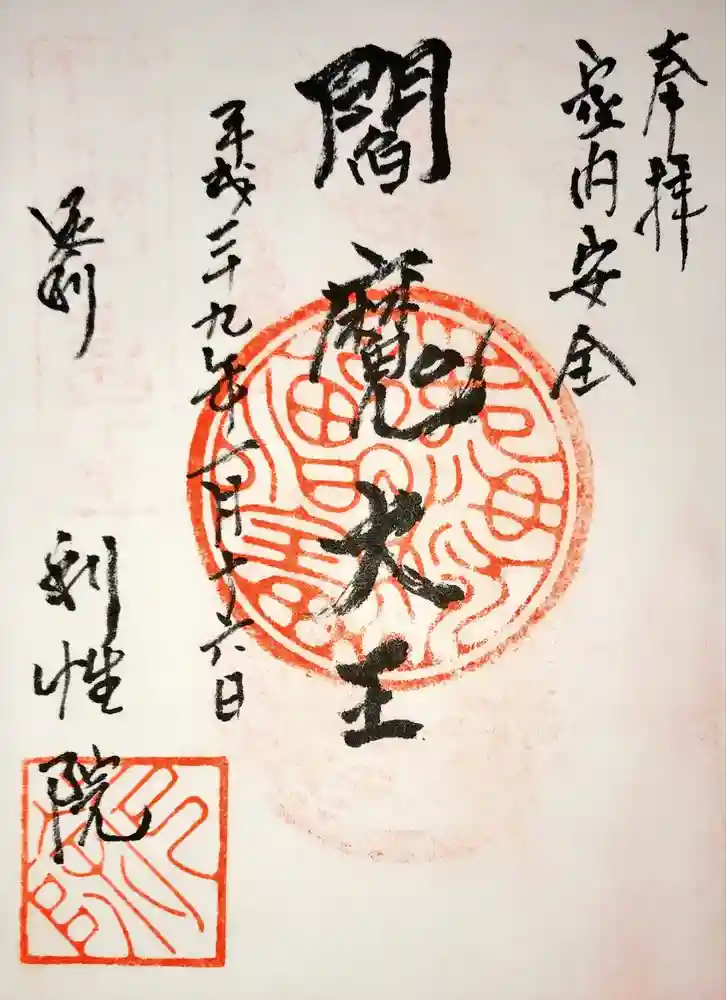 奉拝
家内安全
閻魔大王
平成二十九年一月十六日
足利 利性院